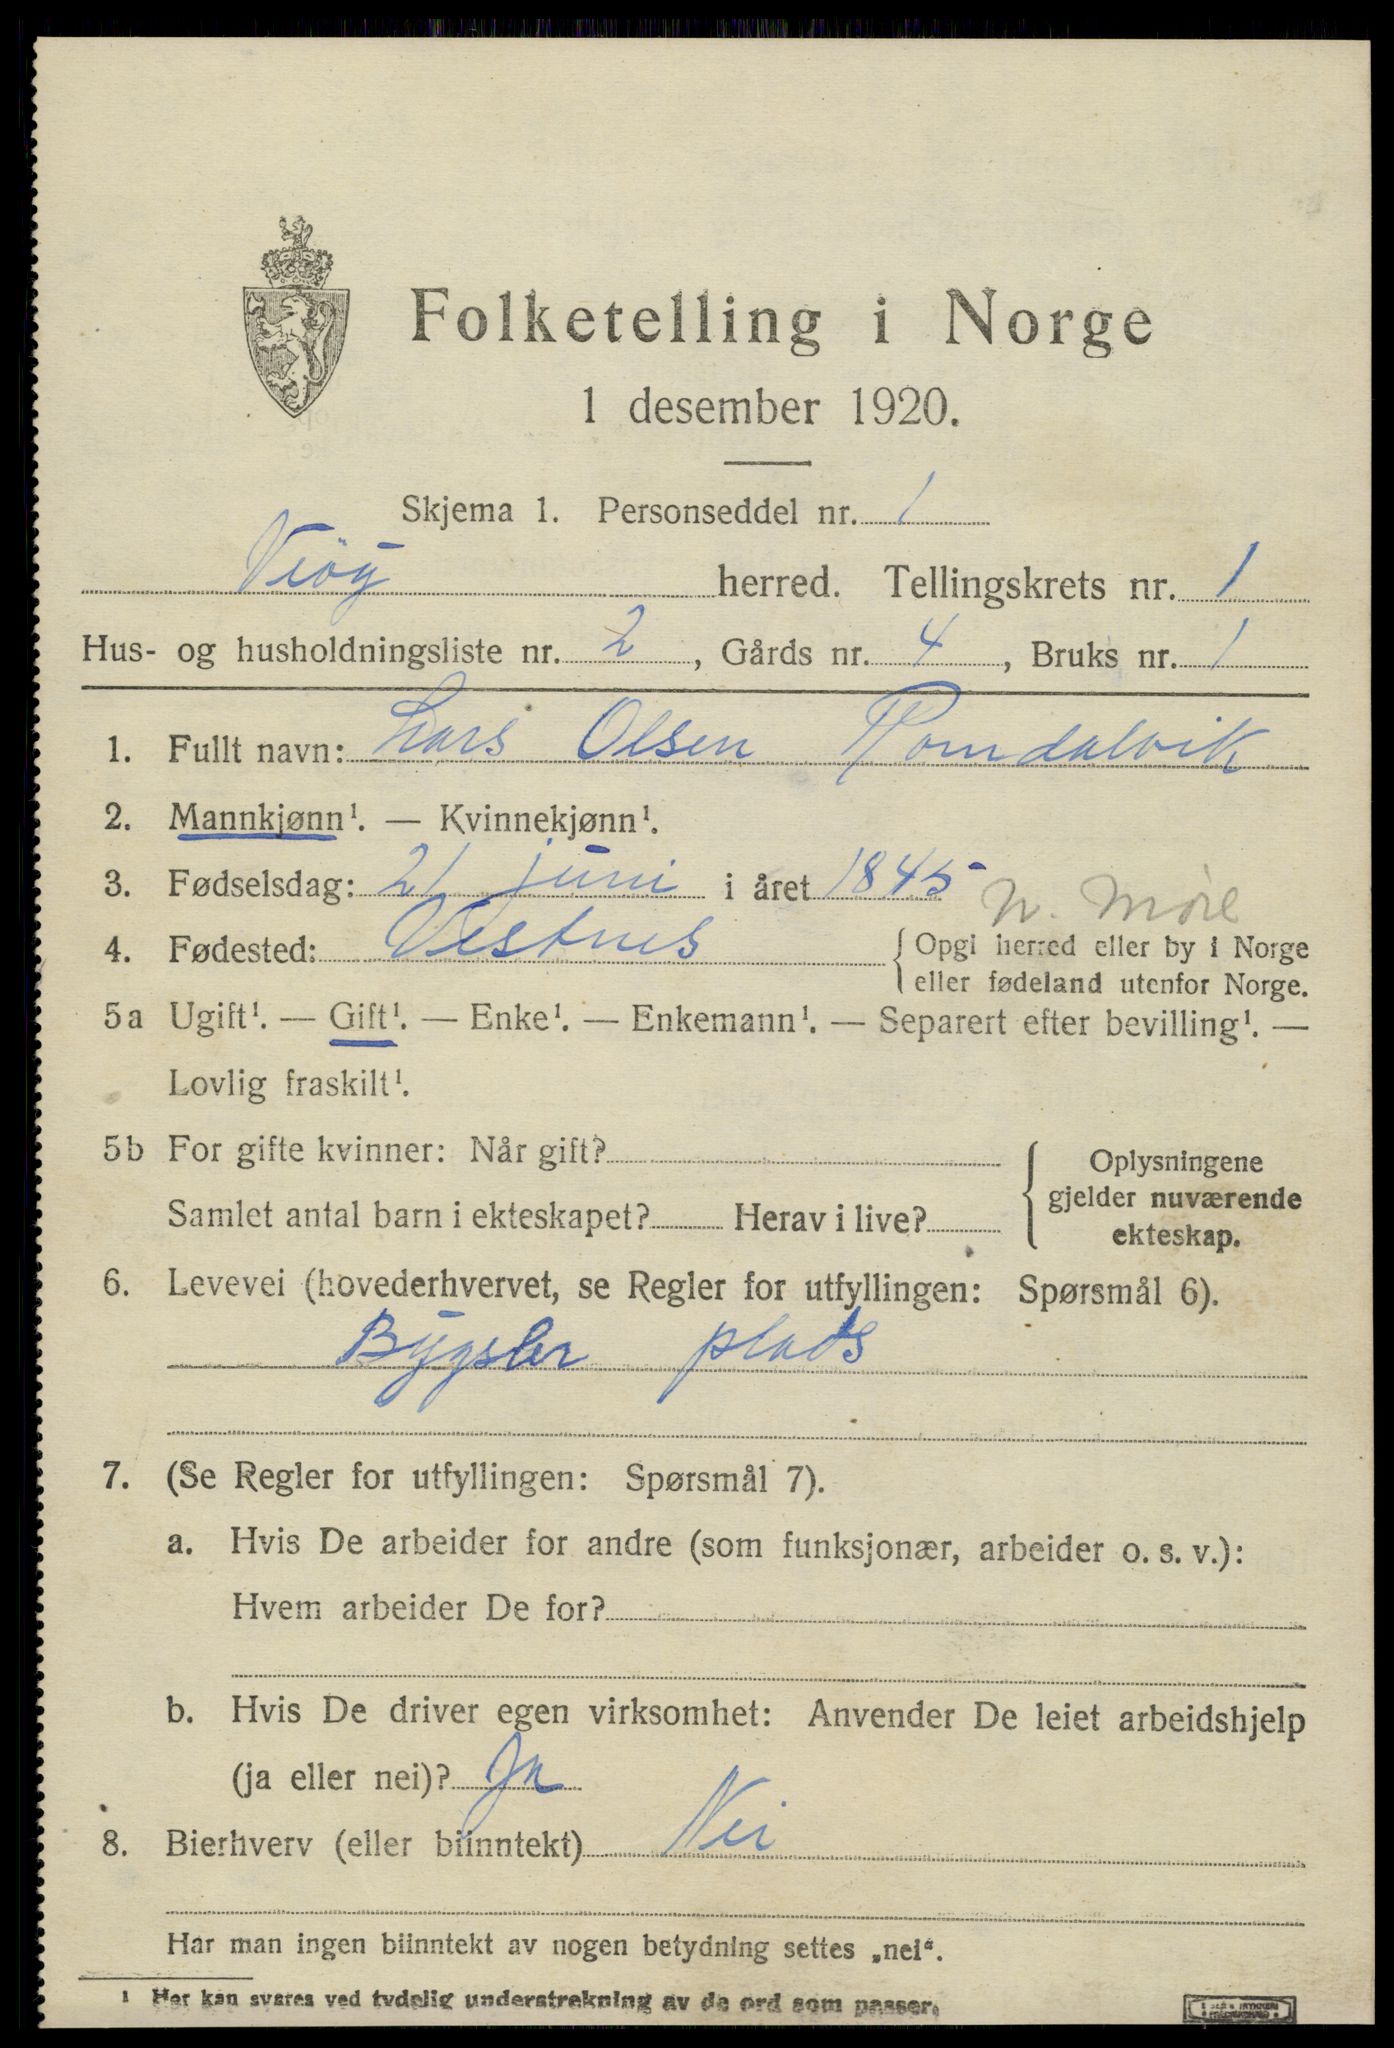 Folketelling i Norge
1 desember 1920.
Skjema 1. Personseddel nr. 1
Veöy herred. Tellingskrets nr. 1
Hus- og husholdningsliste nr. 2, Gårds nr. 4, Bruks nr. 1
1. Fullt navn: Lars Olsen Romdalvik
2. Mannkjønn¹. — Kvinnekjønn¹.
3. Fødselsdag: 21 juni i året 1845
N. Møre
4. Fødested: Vestnes {Opgi herred eller by i Norge
eller fødeland utenfor Norge.
5a Ugift¹. — Gift¹. — Enke¹. — Enkemann¹. — Separert efter bevilling¹. —
Lovlig fraskilt¹.
5b For gifte kvinner: Når gift?
Samlet antal barn i ekteskapet? Herav i live?
Oplysningene
gjelder nuværende
ekteskap.
6. Levevei (hovederhvervet, se Regler for utfyllingen: Spørsmål 6).
Bygsler plads
7. (Se Regler for utfyllingen: Spørsmål 7).
a. Hvis De arbeider for andre (som funksjonær, arbeider o. s. v.):
Hvem arbeider De for?
b. Hvis De driver egen virksomhet: Anvender De leiet arbeidshjelp
(ja eller nei)? Ja
8. Bierhverv (eller biinntekt) Nei
Har man ingen biinntekt av nogen betydning settes „nei“.
¹ Her kan svares ved tydelig understrekning av de ord som passer.